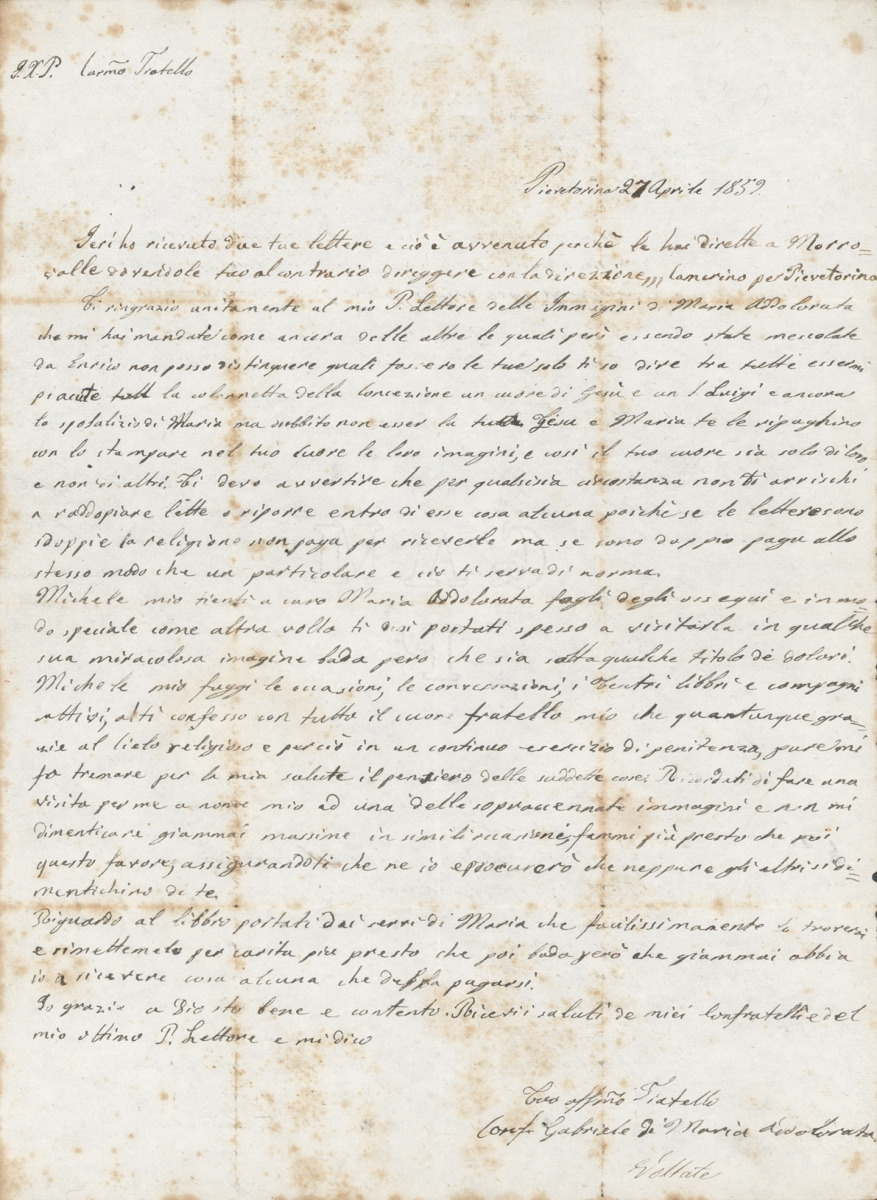 J.X.P. Carmo Fratello
Pievetorina 27 Aprile 1859.
Jeri ho ricevuto due tue lettere e ciò è avvenuto perchè le hai dirette a Morro=
valle dovendole tu al contrario diriggere con la direzzione,,, Camerino per Pievetorina
Ti ringrazio unitamente al mio P. Lettore delle Immagini di Maria Addolorata
che mi hai mandate come ancora delle altre le quali però essendo state mescolate
da Enrico non posso distinguere quali fossero le tue solo ti so dire tra tutte essermi
piacute la colonnetta della Concezione un cuore di Gesù e un S Luigi e ancora
lo sposalizio di Maria ma dubbito non esser la tua Gesu e Maria te le ripaghino
con lo stampare nel tuo Cuore le loro imagini, e così il tuo cuore sia solo di loro
e non di altri. Ti devo avvertire che per qualsisia circostanza non ti arrischi
a raddopiare lette o riporre entro di esse cosa alcuna poichè se le lettere sono
sdoppie la religione non paga per riceverle ma se sono doppie paga allo
stesso modo che un particolare e ciò ti serva di norma.
Michele mio tienti a caro Maria Addolorata fagli degli ossequi e in mo=
do speciale come altra volta ti dissi portati spesso a visitarla in qualche
sua miracolosa imagine bada pero che sia sotto qualche titolo de dolori.
Michele mio fuggi le occasioni, le conversazioni, i Teatri libbri e compagni
cattivi, ti confesso con tutto il cuore fratello mio che quantunque gra=
zie al Cielo religioso e perciò in un continuo esercizio di penitenza, pure mi
fa tremare per la mia salute il pensiero delle suddette cose. Ricordati di fare una
visita per me a nome mio ad una delle sopraccennate immagini e non mi
dimenticare giammai massime in simili occasioni, fammi più presto che poi
questo favore, assigurandoti che ne io e procurerò che neppure gli altri si di=
mentichino di te.
Riguardo al libbro portati dai servi di Maria che facilissimamente lo troverai
e rimettemelo per carita piu presto che poi bada però che giammai abbia
io a ricevere cosa alcuna che debba pagarsi.
Io grazie a Dio sto bene e contento. Ricevi i saluti de miei Confratelli e del
mio ottimo P. Lettore e mi dico
Tuo affmo Fratello
Conf. Gabriele di Maria Addolorata
Voltate